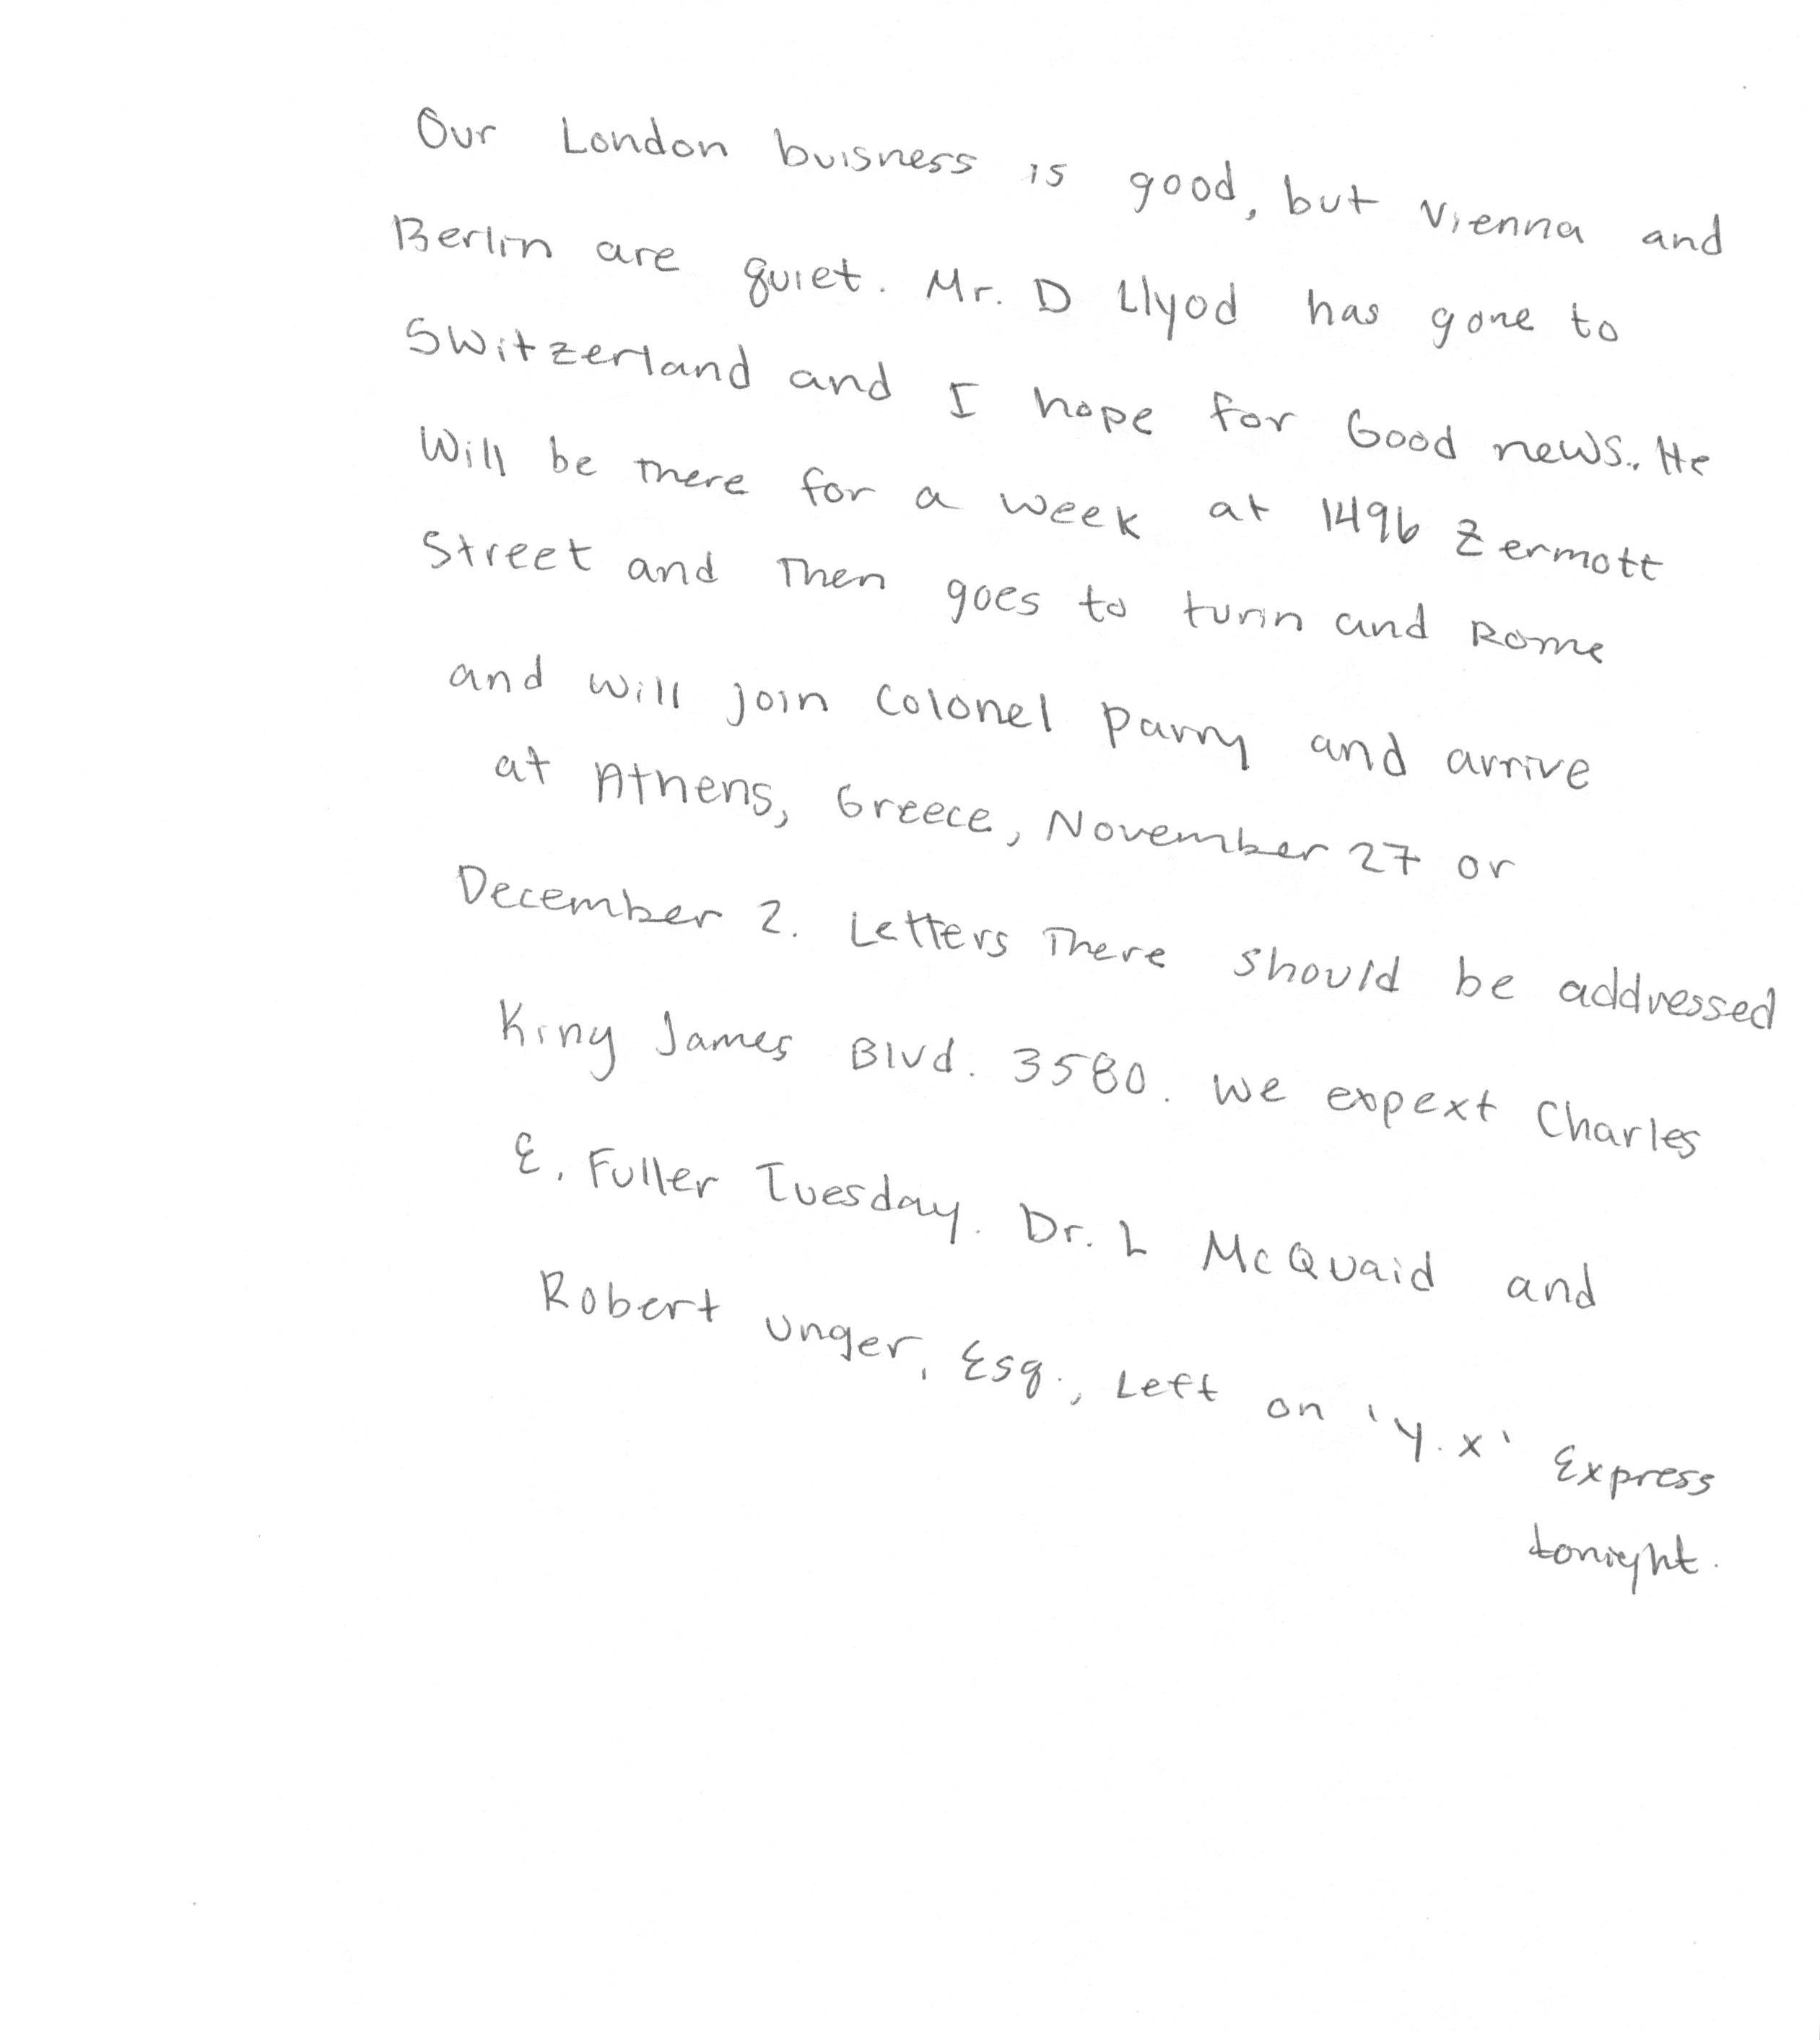 Our London buisness is good, but Vienna and
Berlin are quiet. Mr. D Llyod has gone to
Switzerland and I hope for Good news. He
Will be there for a week at 1496 Zermott
Street and Then goes to turin and Rome
and will join Colonel Parry and arrive
at Athens, Greece, November 27 or
December 2. Letters There should be addressed
King James Blvd. 3580. We expext Charles
E. Fuller Tuesday. Dr. L McQuaid and
Robert Unger, Esq., Left on 'Y.X' Express
tonight.